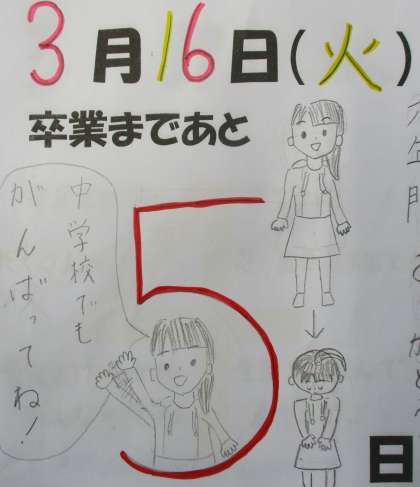 3月16日(火)
卒業まであと
5
日
中学校でも
がんばってね!